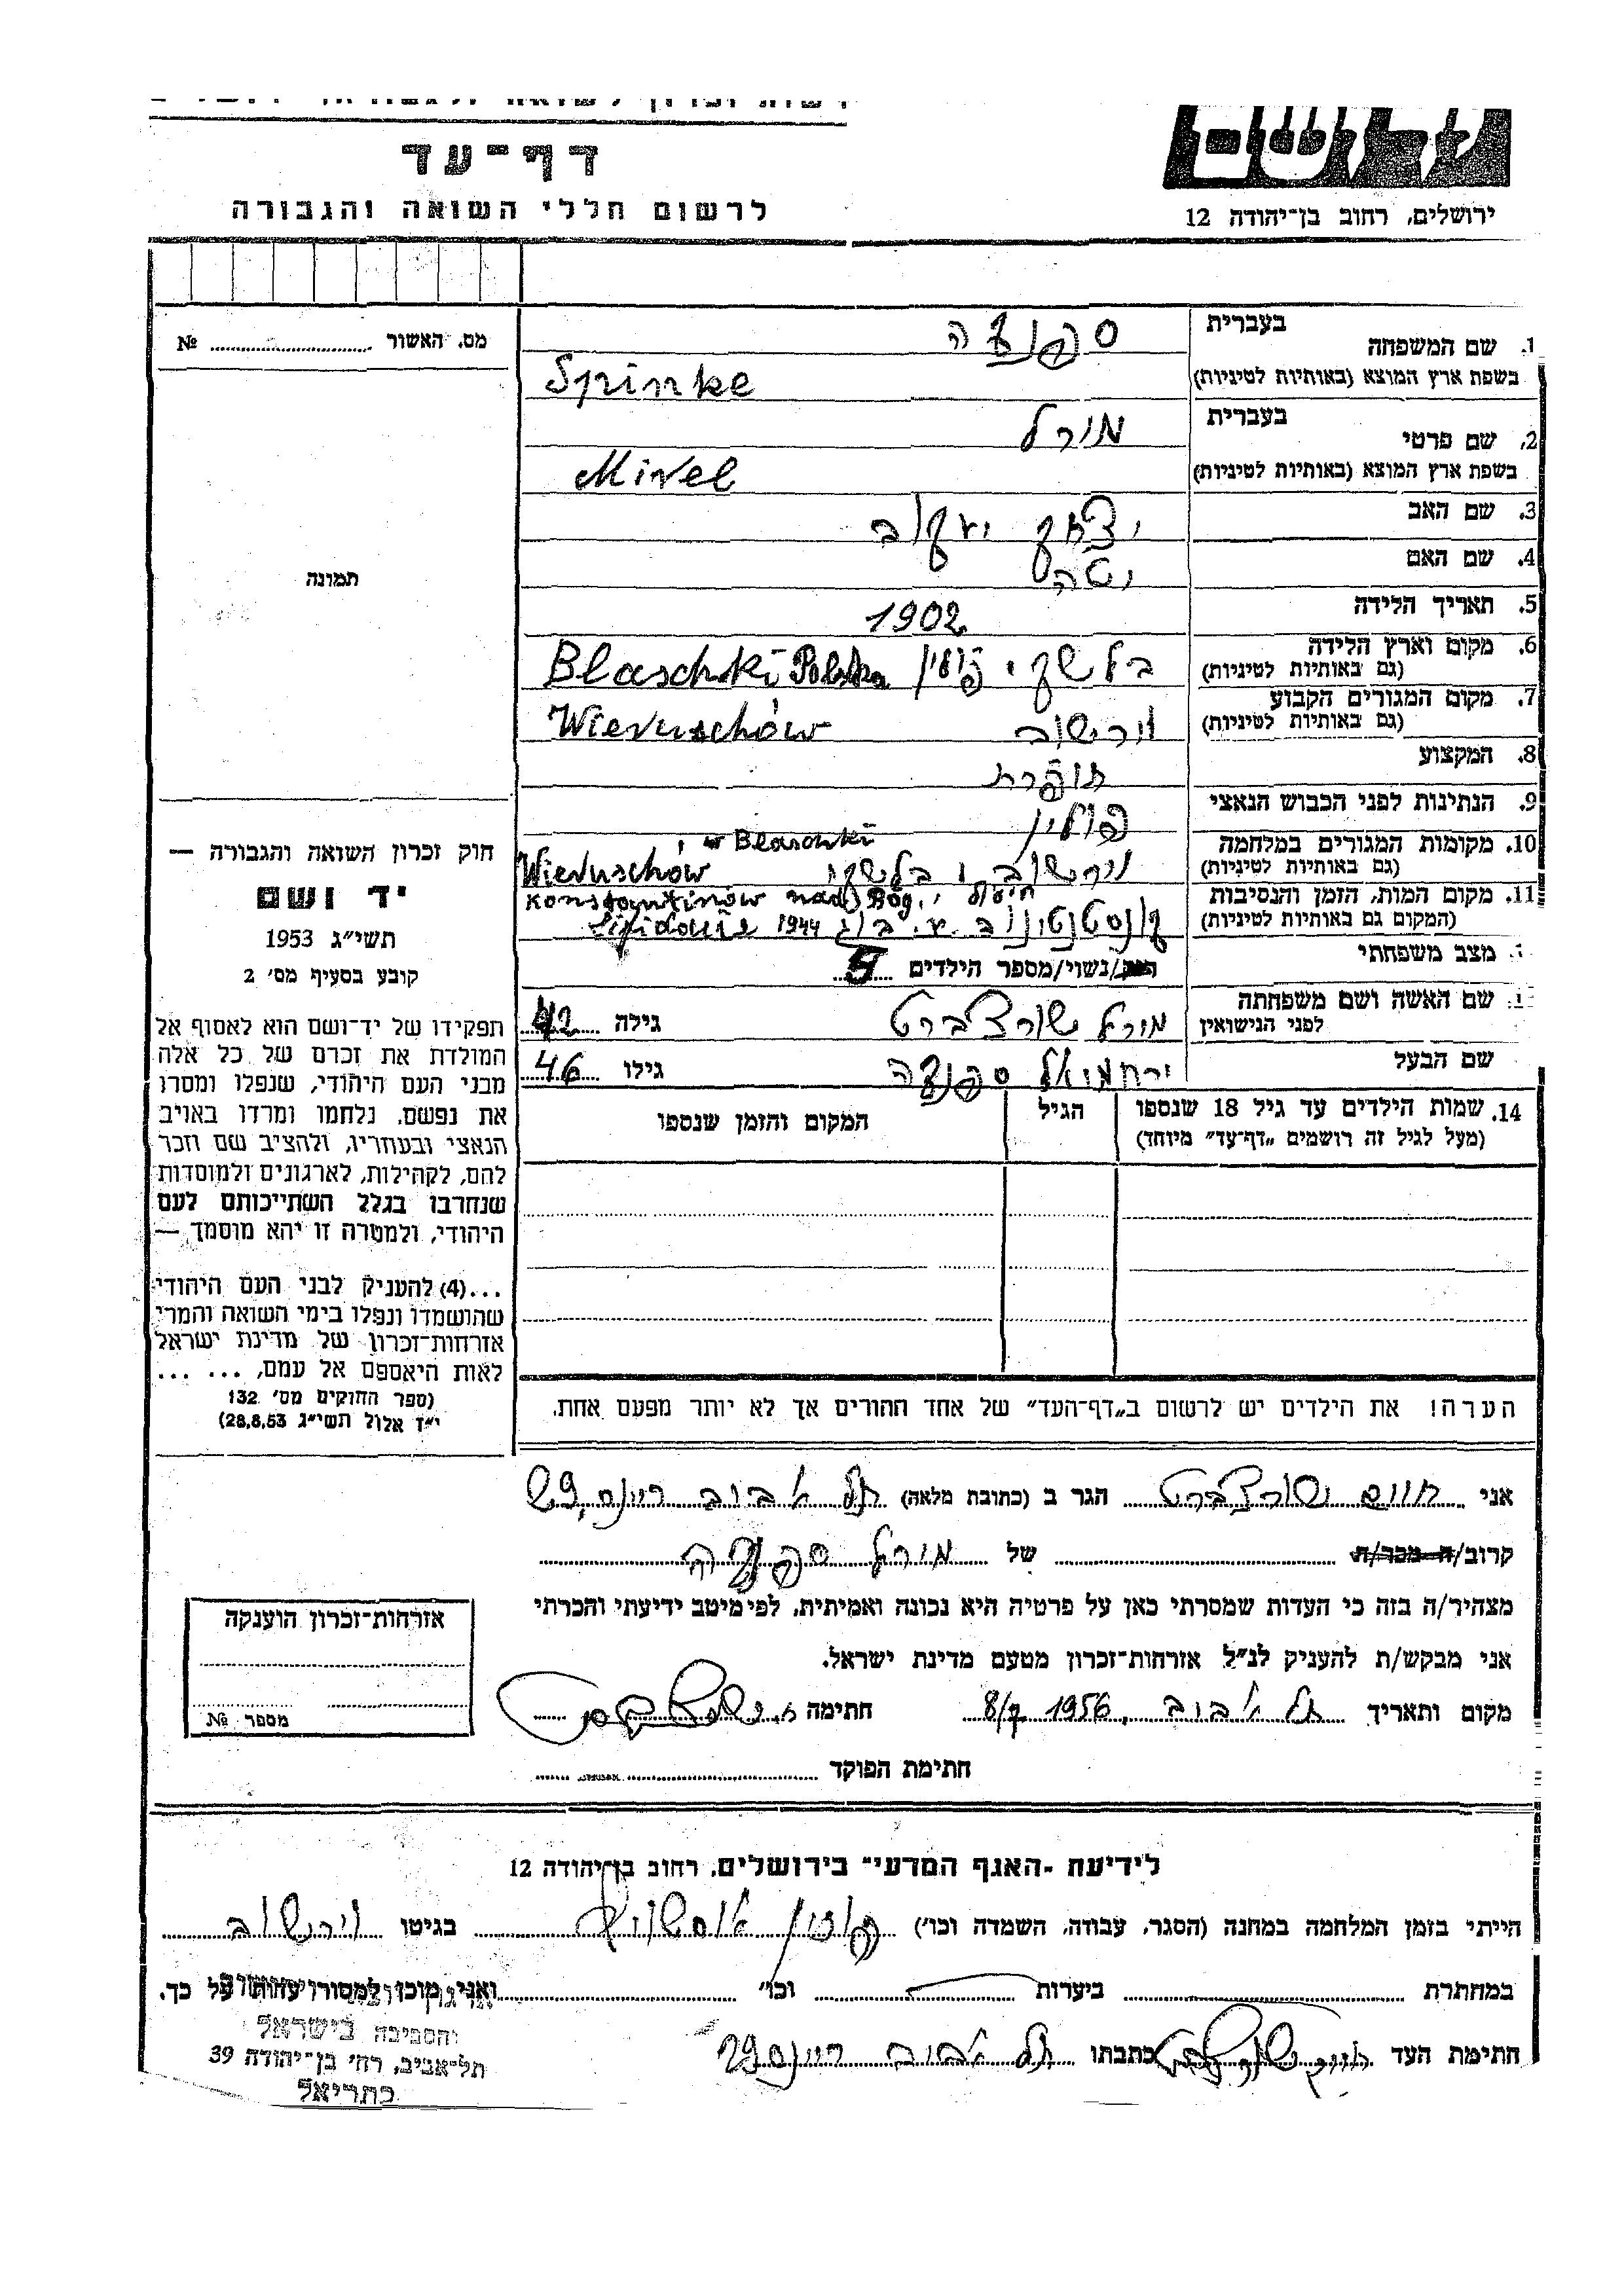 דף־עד
לרשום חללי השואה והגבורה
ירושלים, רחוב בן־יהודה 12
מס. האשור № 
1. שם המשפחה בעברית
בשפת ארץ המוצא (באותיות לטיניות) Spinke
2. שם פרטי בעברית מירל
בשפת ארץ המוצא (באותיות לטיניות) Mirel
3. שם האב יצחק יעקב
4. שם האם יטה
5. תאריך הלידה 1902
6. מקום וארץ הלידה בלשקי פולין Blaschki Polska
(גם באותיות לטיניות)
7. מקום המגורים הקבוע וירשוב Wieruschów
(גם באותיות לטיניות)
8. המקצוע תופרת
9. הנתינות לפני הכבוש הנאצי פולין
10. מקומות המגורים במלחמה w Blaschki
(גם באותיות לטיניות) וירשוב ו בלשקי Wieruschów
11. מקום המות, הזמן והנסיבות Konstantinów nad Bóg.
(המקום גם באותיות לטיניות) קונסטנטינוב 1944
מצב משפחתי נשוי/מספר הילדים 5
שם האשה ושם משפחתה מירל שורצברט גילה 42
לפני הנישואין
שם הבעל ירחמיאל גילו 46
14. שמות הילדים עד גיל 18 שנספו הגיל המקום והזמן שנספו
(מעל לגיל זה רושמים „דף־עד״ מיוחד)
הערה! את הילדים יש לרשום ב„דף־העד״ של אחד ההורים אך לא יותר מפעם אחת.
תמונה
חוק זכרון השואה והגבורה —
יד ושם
תשי״ג 1953
קובע בסעיף מס׳ 2
תפקידו של יד־ושם הוא לאסוף אל
המולדת את זכרם של כל אלה
מבני העם היהודי, שנפלו ומסרו
את נפשם, נלחמו ומרדו באויב
הנאצי ובעוזריו, ולהציב שם וזכר
להם, לקהילות, לארגונים ולמוסדות
שנחרבו בגלל השתייכותם לעם
היהודי, ולמטרה זו יהא מוסמך —
...(4) להעניק לבני העם היהודי
שהושמדו ונפלו בימי השואה והמרי
אזרחות־זכרון של מדינת ישראל
לאות היאספם אל עמם, ... ...
(ספר החוקים מס׳ 132
י״ד אלול תשי״ג 28,8,53)
אני חיים שורצברט הגר ב (כתובת מלאה) תל אביב ריינס 29
קרוב/ה מכר/ה של מירל
מצהיר/ה בזה כי העדות שמסרתי כאן על פרטיה היא נכונה ואמיתית, לפי מיטב ידיעתי והכרתי
אני מבקש/ת להעניק לנ״ל אזרחות־זכרון מטעם מדינת ישראל.
מקום ותאריך תל אביב 1956 חתימה
חתימת הפוקד
אזרחות־זכרון הוענקה
מספר №
לידיעת -האגף המדעי״ בירושלים, רחוב בן־יהודה 12
הייתי בזמן המלחמה במחנה (הסגר, עבודה, השמדה וכו׳) בגיטו וירשוב
במחתרת ביערות וכו׳ ואני מוכן למסור עדות על כך.
חתימת העד כתבתו תל אביב ריינס 29
והסביבה בישראל
תל־אביב, רח׳ בן־יהודה 39
כתריאל